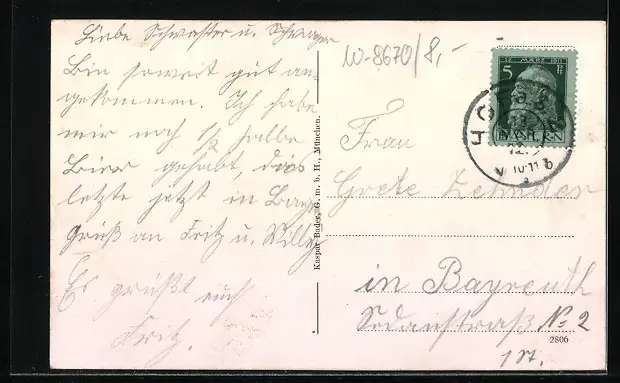 Liebe Schwester u. Schwager
Bin soweit gut an-
gekommen. Ich habe
mir noch 1/2 halbe
Bier gehabt, dies
letzte jetzt in Bay.
Gruß an Fritz u. Willy
Es grüßt euch
Fritz.
W-8670/8,-
Kaspar Bader, G. m. b. H., München.
12. MÄRZ 1911
5 Pf
BAYERN
HO
12. 9
V 10-11
Frau
Grete Zehnder
in Bayreuth
Sedanstraß No 2
2806
1 St.